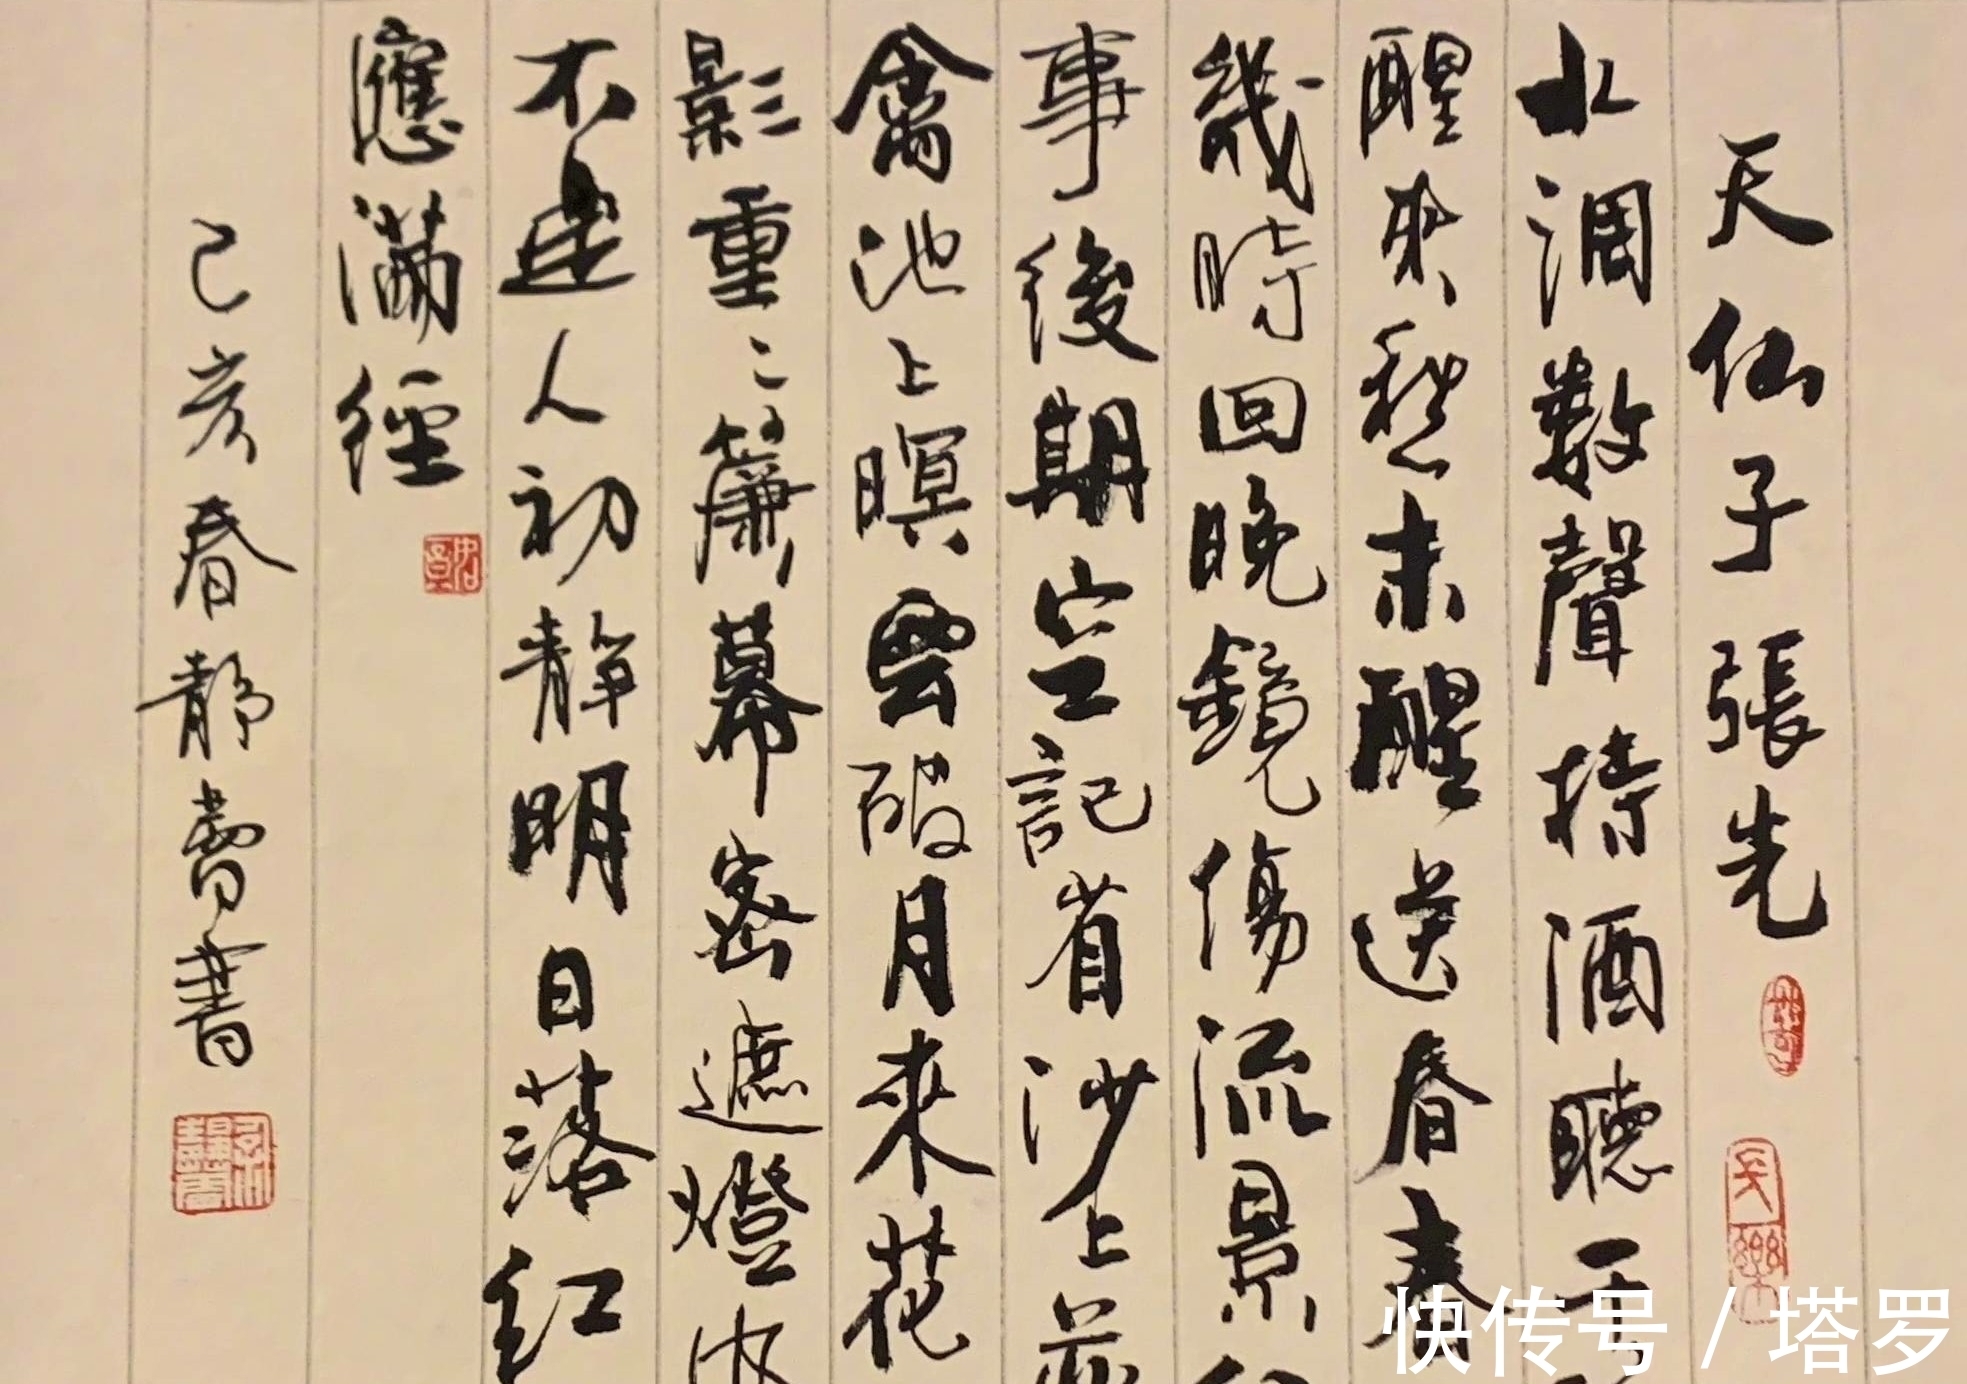 天仙子張先
水調數聲持酒聽午
醒來愁未醒送春春
幾時回晚鏡傷流景
事後期空記省沙上並
禽池上暝雲破月來花
影重〻簾幕密遮燈
不定人初靜明日落紅
應滿徑
己亥春静書
快传号 / 塔罗